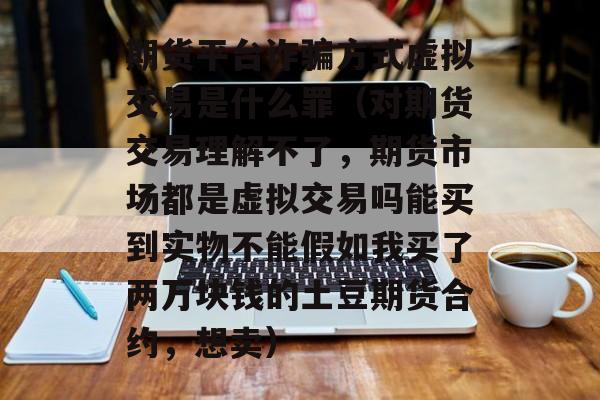 期货平台诈骗方式虚拟
交易是什么罪（对期货
交易理解不了，期货市
场都是虚拟交易吗能买
到实物不能假如我买了
两万块钱的土豆期货合
约，想卖）